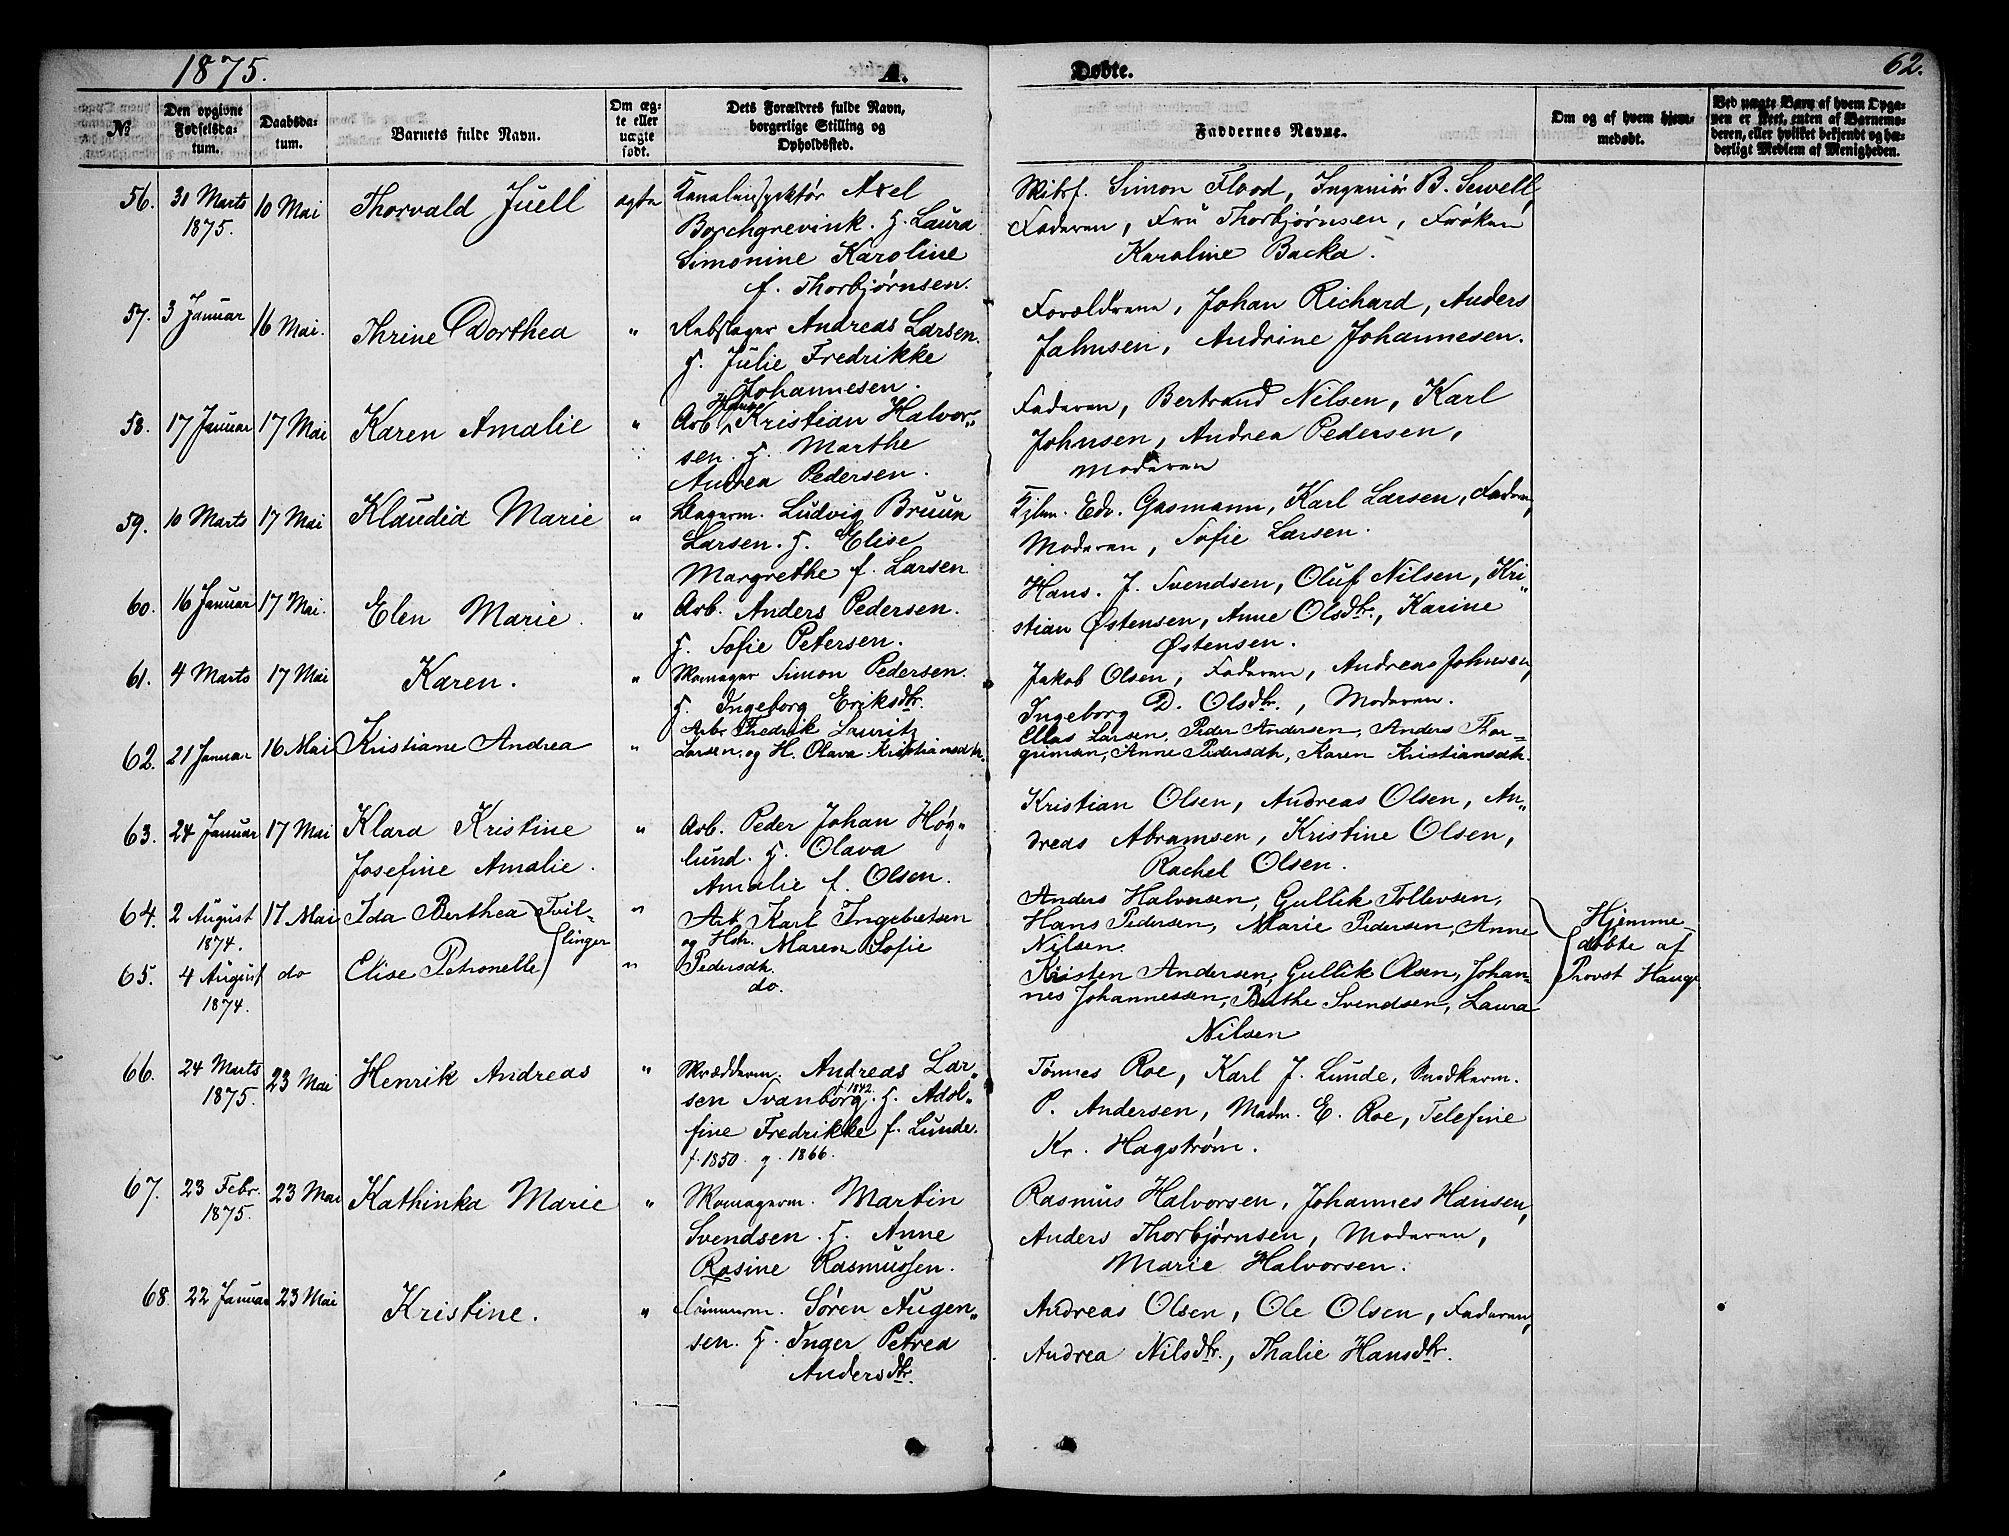 1875. A. Døbte. 62.
№
Den opgivne Fødselsdatum.
Daabsdatum.
Barnets fulde Navn.
Om ægte eller uægte født.
Dets Forældres fulde Navn, borgerlige Stilling og Opholdssted.
Faddernes Navne.
Om og af hvem hjemmedøbt.
Ved uægte Barn af hvem Opgaven er skeet, enten af Barnemoderen, eller hvilket bekjendt og hæderligt Medlem af Menigheden.
56. 31 Marts 10 Mai Thorvald Juell ægte Kanalinspektør Axel
1875. Borchgrevink. H. Laura
Simonine Karoline
f. Thorbjørnsen.
Simon Flood, Ingeniør B. Sewell,
Faderen, Fru Thorbjørnsen, Frøken
Karoline Backa.
57. 3 Januar 16 Mai. Thrine Dorthea " Rebslager Andreas Larsen.
H. Julie Fredrikke
Johannesen.
Forældrene, Johan Richard, Anders
Jahnsen, Andrine Johannesen.
58. 17 Januar 17 Mai Karen Amalie " Arb. Hans Kristian Halvor-
sen. H. Marthe
Andrea Pedersen.
Faderen, Bertrand Nilsen, Karl
Johnsen, Andrea Pedersen,
Moderen
59. 10 Marts 17 Mai Klaudia Marie " Slagerm. Ludvig Bruun
Larsen. H. Elise
Margrethe f. Larsen
Edv. Gasmann, Karl Larsen, Faderen,
Moderen, Sofie Larsen.
60. 16 Januar 17 Mai. Elen Marie. " Arb. Anders Pedersen.
H. Sofie Petersen.
Hans. J. Svendsen, Oluf Nilsen, Kri-
stian Østensen, Anne Olsdtr., Karine
Østensen.
61. 4 Marts 17 Mai Karen. " Skomager Simon Pedersen.
H. Ingeborg Eriksdtr.
Jakob Olsen, Faderen, Andreas Johnsen,
Ingeborg D. Olsdtr., Moderen.
62. 21 Januar 16 Mai Kristiane Andrea " Arbr Fredrik Lauritz
Larsen, og H. Olava Kristiansdtr.
Ellas Larsen, Peder Andersen, Anders Thor-
grimsen, Anne Pedersdtr, Karen Kristiansdtr.
63. 24 Januar 17 Mai Klara Kristine " Arb. Peder Johan Høg-
Josefine Amalie. lund. H. Olava
Amalie f. Olsen.
Kristian Olsen, Andreas Olsen, An-
dreas Abramsen, Kristine Olsen,
Rachel Olsen.
64. 2 August 17 Mai Ida Berthea Tvil- " Arb. Karl Ingebretsen
1874. linger og Hstr. Maren Sofie
Pedersdtr.
Anders Halvorsen, Gullik Tollevsen,
Hans Pedersen, Marie Pedersen, Anne
Nilsen
Hjemme-
døbte af
Provst Hauge
65. 4 August do Elise Petronelle " do.
1874.
Kristen Andersen, Gullik Olsen, Johan-
nes Johannessen, Berthe Svendsen, Laura
Nilsen
66. 24 Marts 23 Mai Henrik Andreas " Skrædderm. Andreas Lar-
1875. sen Svanborg f. 1842. H. Adol-
fine Fredrikke f. Lunde.
f. 1850. g. 1866.
Tønnes Roe, Karl J. Lunde, Snedkerm.
P. Andersen, Madm. E. Roe, Telefine
Kr. Hagstrøm.
67. 23 Febr. 23 Mai Kathinka Marie " Skomagerm. Martin
1875. Svendsen. H. Anne
Rosine Rasmussen.
Rasmus Halvorsen, Johannes Hansen,
Anders Thorbjørnsen, Moderen,
Marie Halvorsen.
68. 22 Januar 23 Mai Kristine. " Tømmerm. Søren Augen-
sen. H. Inger Petrea
Andersdtr.
Andreas Olsen, Ole Olsen, Faderen,
Andrea Nilsdtr., Thalie Hansdtr.